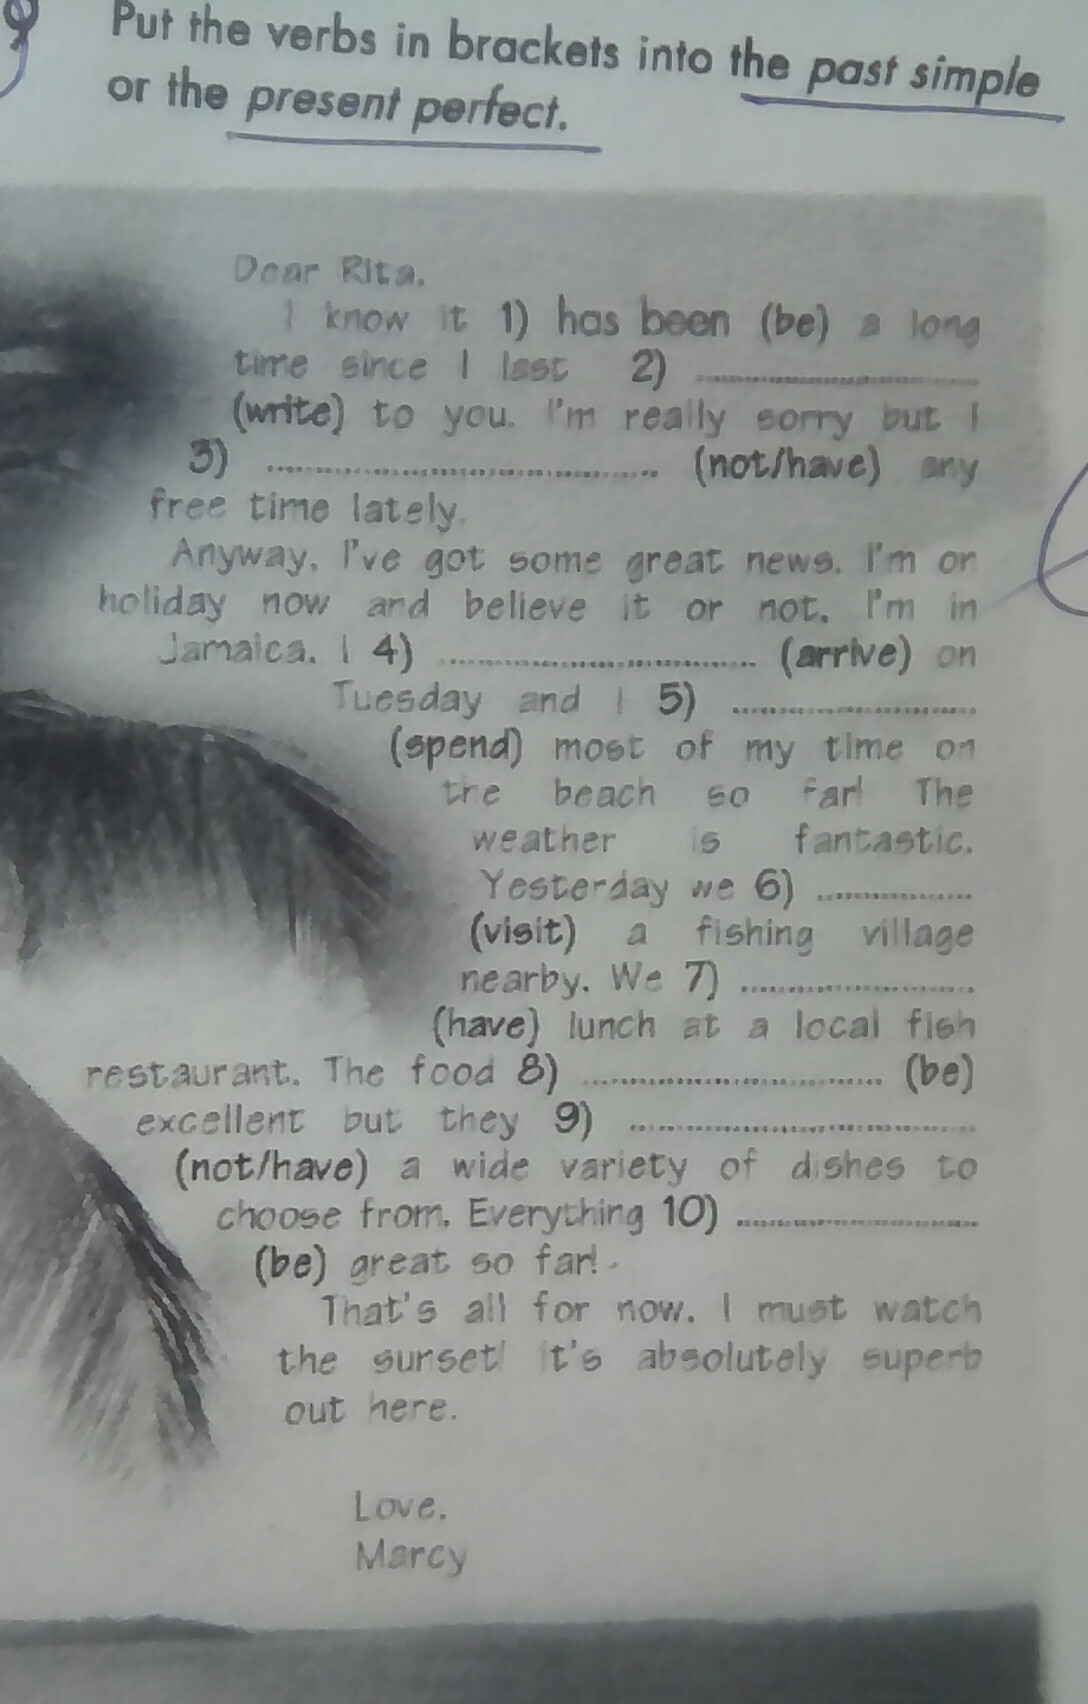 9 Put the verbs in brackets into the past simple
or the present perfect.
Dear Rita,
I know it 1) has been (be) a long
time since I last 2) ........................
(write) to you. I'm really sorry but I
3) .................................. (not/have) any
free time lately.
Anyway, I've got some great news. I'm on
holiday now and believe it or not, I'm in
Jamaica. I 4) ........................... (arrive) on
Tuesday and I 5) .....................
(spend) most of my time on
the beach so far! The
weather is fantastic.
Yesterday we 6) ..............
(visit) a fishing village
nearby. We 7) ....................
(have) lunch at a local fish
restaurant. The food 8) .......................... (be)
excellent but they 9) ..............................
(not/have) a wide variety of dishes to
choose from. Everything 10) .....................
(be) great so far!
That's all for now. I must watch
the sunset! It's absolutely superb
out here.
Love,
Marcy